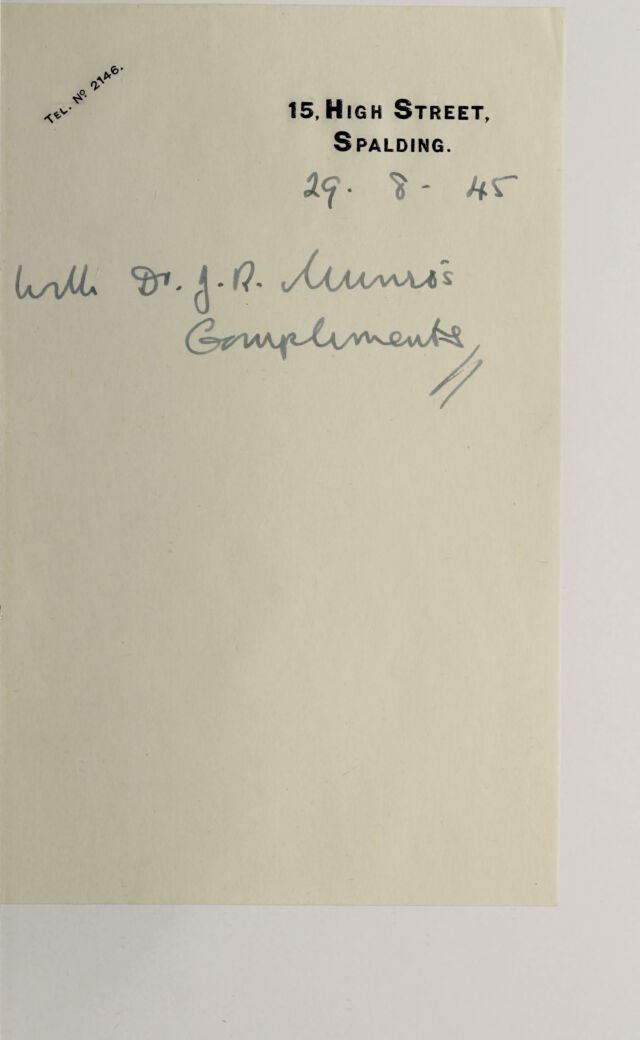 TEL. Nº 2146.
15, HIGH STREET,
SPALDING.
29. 8 - 45
With Dr. J. R. Munro's
Compliments